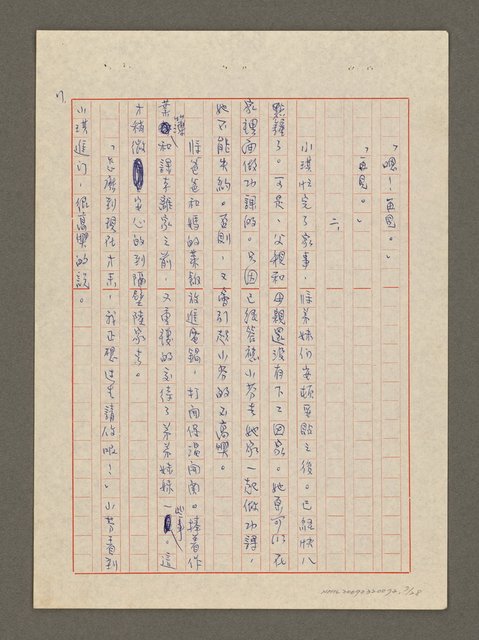 「嗯！再見。」
「再見。」
二、
小琪忙完了家事，將弟妹們安頓妥貼之後。已經快八
點鐘了。可是、父親和母親還沒有下工回家。她原可以在
家裡面做功課的。只因已經答應小芬去她家一起做功課，
她不能失約。否則，又會引起小芬的不高興。
將爸爸和媽的菜飯放進電鍋，打開保溫開關。捧著作
業簿和課本離家之前，又重複的交待了弟弟妹妹一些事。這
才稍微安心的到隔壁陸家去。
「怎麼到現在才來，我正想過去請你啦！」小芬看到
小琪進門，很高興的說。
7.